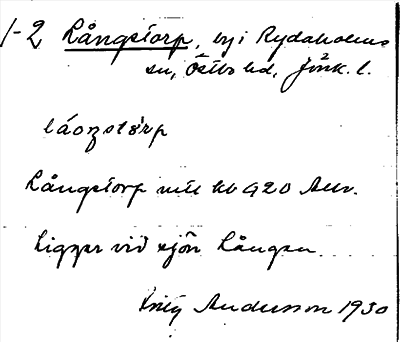 1-2 Långstorp, by i Rydaholms
sn, Östbo hd, Jönk. l.
låoŋstårp
Långstorp mtl kb 920 Auv.
Ligger vid sjön Lången.
Andersson 1930